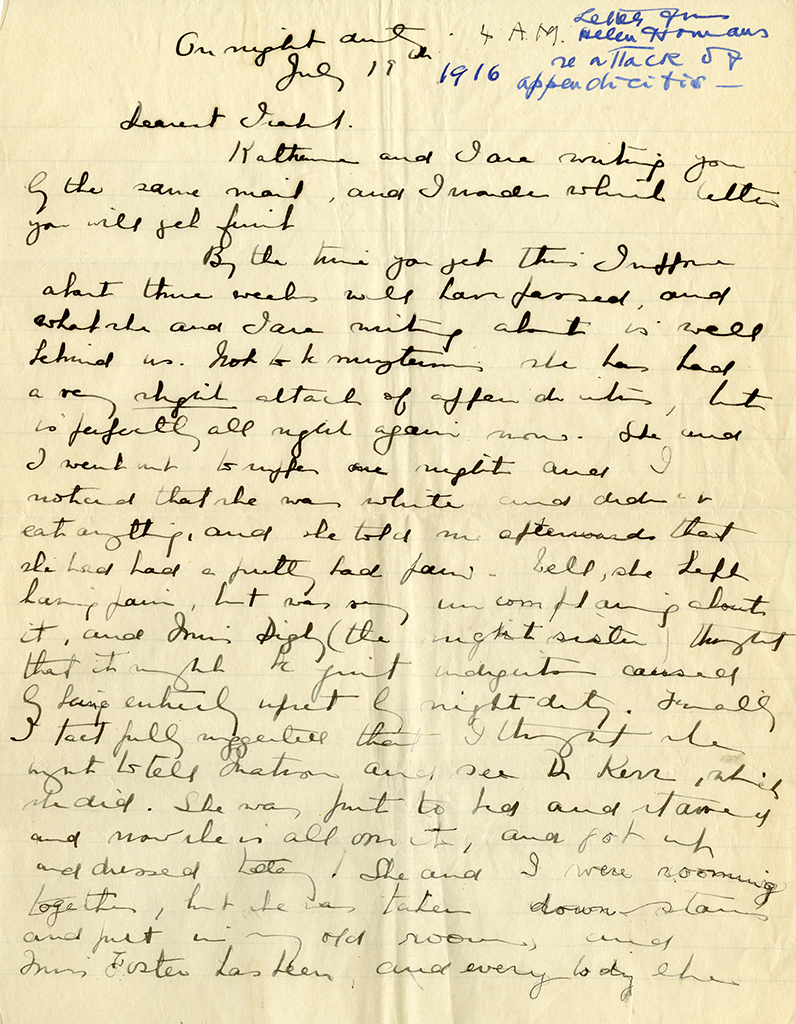 On night duty. 4 A.M.
July 19th 1916
Letter from
Helen Homans
re attack of
appendicitis —
Dearest Isabel.
Katherine and I are writing you
by the same mail, and I wonder which letter
you will get first
By the time you get this I suppose
about three weeks will have passed, and
what she and I are writing about is well
behind us. Not to be mysterious she has had
a very slight attack of appendicitis, but
is perfectly all right again now. She and
I went out to supper one night and I
noticed that she was white and didn't
eat anything, and she told me afterwards that
she had had a pretty bad pain. Well, she kept
having pain, but was very uncomplaining about
it, and Miss Digby (the night sister) thought
that it might be just indigestion caused
by being entirely upset by night duty. Finally
I tactfully suggested that I thought she
ought to tell Matron and see Dr Kerr, which
she did. She was put to bed and starved
and now she is all over it, and got up
and dressed today! She and I were rooming
together, but she was taken down stairs
and put in my old room, and
Miss Foster has been, and every body else